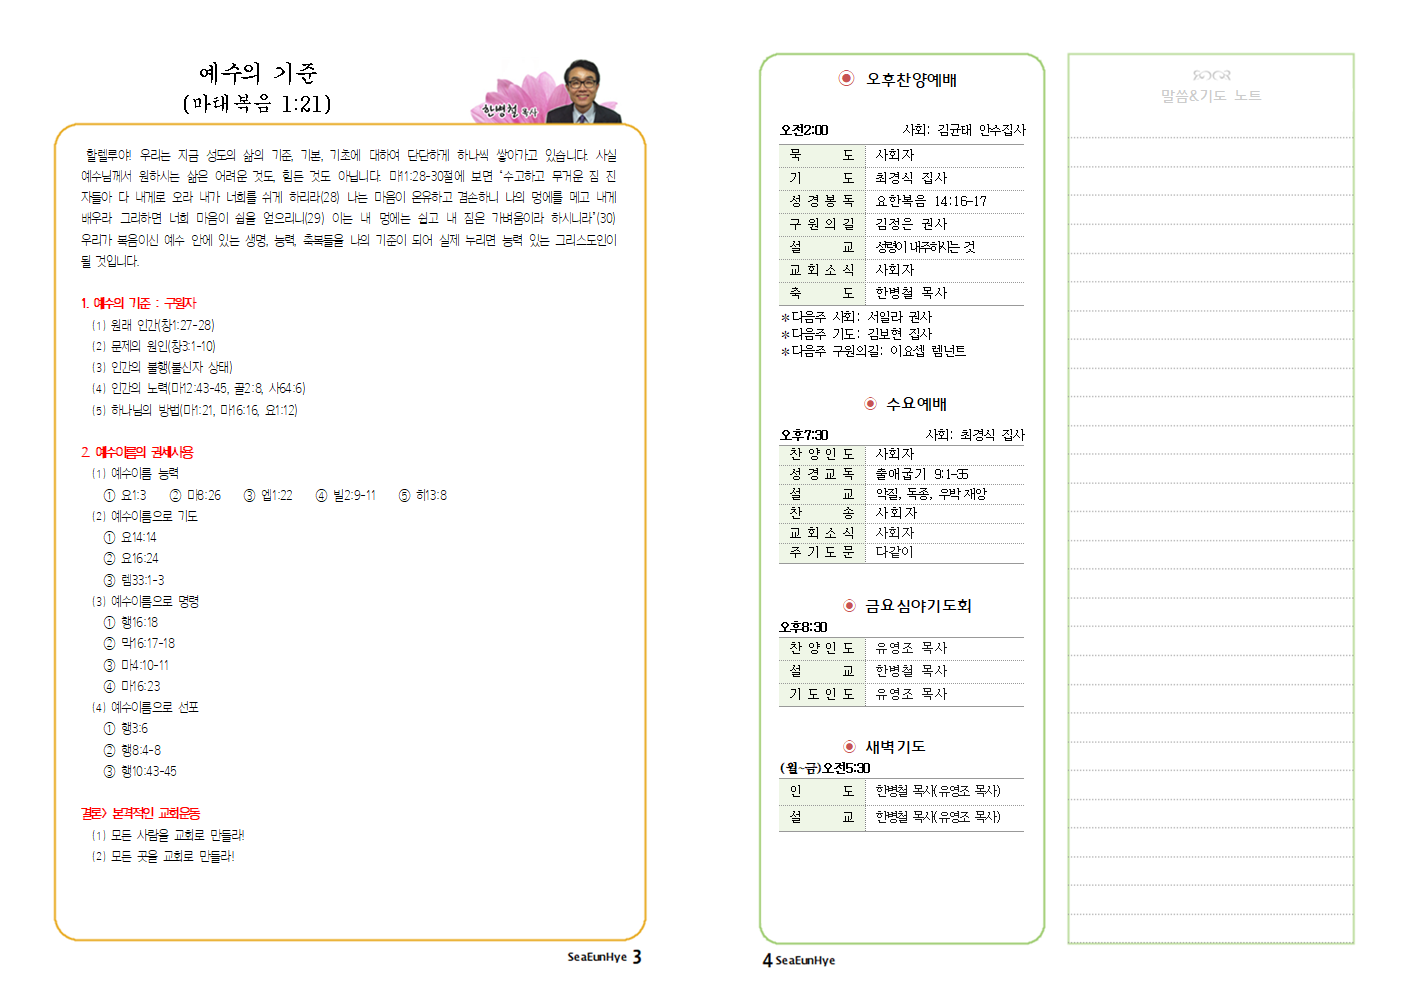 예수의 기준
(마태복음 1:21)
한병철 목사
할렐루야! 우리는 지금 성도의 삶의 기준, 기본, 기초에 대하여 단단하게 하나씩 쌓아가고 있습니다. 사실
예수님께서 원하시는 삶은 어려운 것도, 힘든 것도 아닙니다. 마11:28-30절에 보면 “수고하고 무거운 짐 진
자들아 다 내게로 오라 내가 너희를 쉬게 하리라(28) 나는 마음이 온유하고 겸손하니 나의 멍에를 메고 내게
배우라 그리하면 너희 마음이 쉴을 얻으리니(29) 이는 내 멍에는 쉽고 내 짐은 가벼움이라 하시니라”(30)
우리가 복음이신 예수 안에 있는 생명, 능력, 축복들을 나의 기준이 되어 실제 누리면 능력 있는 그리스도인이
될 것입니다.
1. 예수의 기준 : 구원자
(1) 원래 인간(창1:27-28)
(2) 문제의 원인(창3:1-10)
(3) 인간의 불행(불신자 상태)
(4) 인간의 노력(마12:43-45, 골2:8, 사64:6)
(5) 하나님의 방법(마1:21, 마16:16, 요1:12)
2. 예수이름의 권세사용
(1) 예수이름 능력
① 요1:3 ② 마8:26 ③ 엡1:22 ④ 빌2:9-11 ⑤ 히13:8
(2) 예수이름으로 기도
① 요14:14
② 요16:24
③ 렘33:1-3
(3) 예수이름으로 명령
① 행16:18
② 막16:17-18
③ 마4:10-11
④ 마16:23
(4) 예수이름으로 선포
① 행3:6
② 행8:4-8
③ 행10:43-45
결론> 본격적인 교회운동
(1) 모든 사람을 교회로 만들라!
(2) 모든 곳을 교회로 만들라!
SeaEunHye 3
오후찬양예배
오전2:00 사회: 김균태 안수집사
묵 도 사회자
기 도 최경식 집사
성경봉독 요한복음 14:16-17
구원의길 김정은 권사
설 교 성령이 내주하시는 것
교회소식 사회자
축 도 한병철 목사
*다음주 사회: 서일라 권사
*다음주 기도: 김보현 집사
*다음주 구원의길: 이요셉 렘넌트
수요예배
오후7:30 사회: 최경식 집사
찬양인도 사회자
성경교독 출애굽기 9:1-35
설 교 악질, 독종, 우박 재앙
찬 송 사회자
교회소식 사회자
주기도문 다같이
금요심야기도회
오후8:30
찬양인도 유영조 목사
설 교 한병철 목사
기도인도 유영조 목사
새벽기도
(월~금)오전5:30
인 도 한병철 목사(유영조 목사)
설 교 한병철 목사(유영조 목사)
4 SeaEunHye
말씀&기도 노트